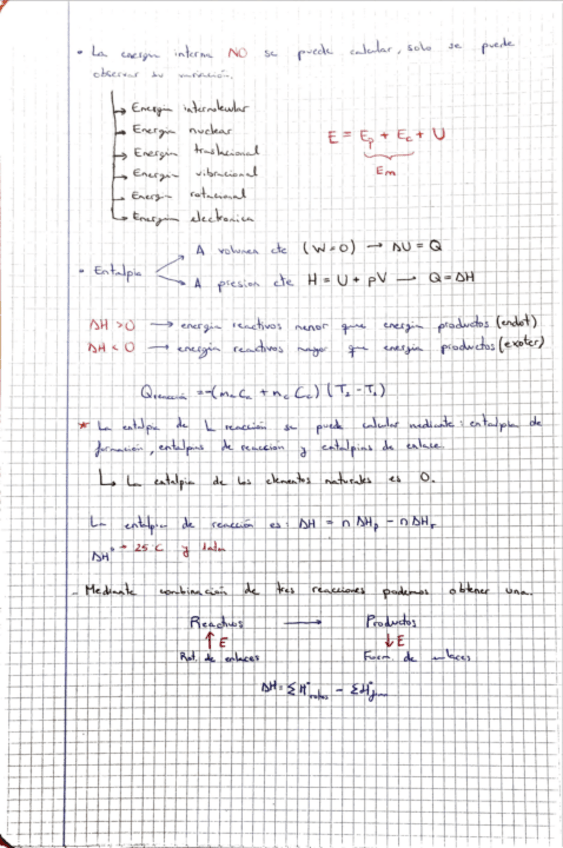 • La energía interna NO se puede calcular, solo se puede
observar su variación.
→ Energía intermolecular
→ Energía nuclear
→ Energía traslacional
→ Energía vibracional
→ Energía rotacional
→ Energía electronica
E = Ep + Ec + U
Em
• Entalpia
A volumen cte (W=0) → ΔU = Q
A presion cte H = U + pV → Q = ΔH
ΔH > 0 → energia reactivos menor que energia productos (endot)
ΔH < 0 → energia reactivos mayor que energia productos (exoter)
Qreacción = -(ma Ca + mc Cc) (T2 - T1)
* La entalpia de la reacción se puede calcular mediante: entalpia de
formación, entalpias de reacción y entalpias de enlace.
↳ La entalpia de los elementos naturales es 0.
La entalpia de reacción es: ΔH = n ΔHp - n ΔHr
ΔH° → 25 C y 1 atm
- Mediante combinación de tres reacciones podemos obtener una.
Reactivos → Productos
↑ E ↓ E
Rot. de enlaces Form. de enlaces
ΔH = ΣH°rotos - ΣH°form